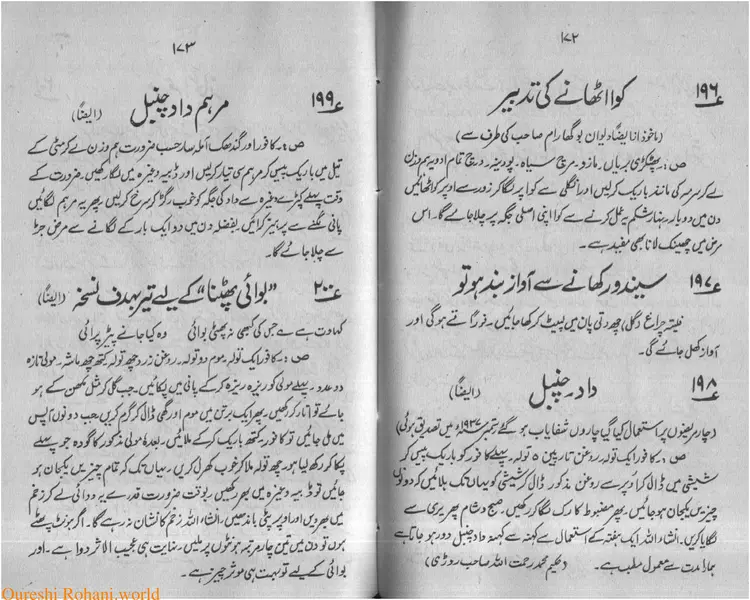 ۱۷۲
۱۹۶ کوا اٹھانے کی تدبیر
(ماخوذ از ایضًا دیوان بوگھارام صاحب کی طرف سے)
ص:۔ پھٹکڑی بریاں۔ مازو۔ مرچ سیاہ۔ پودینہ۔ ہر چہار تمام ادویہ ہم وزن
لے کر سرمہ کی مانند باریک کرلیں اور انگلی سے کوا پر لگا کر زور سے اوپر کو اٹھائیں
دن میں دو بار نہار شکم یہ عمل کرنے سے کوا اپنی اصلی جگہ پر چلا جائے گا۔ اس
مرض میں چھینک لانا بھی مفید ہے۔
۱۹۷ سیندور کھانے سے آواز بند ہو تو
فلیتہ چراغ (گل) چھ رتی پان میں لپیٹ کر کھا جائیں۔ فورًا قے ہوگی اور
آواز کھل جائے گی۔
۱۹۸ داد۔ چنبل (ایضًا)
(چار مریضوں پر استعمال کیا گیا چاروں شفایاب ہو گئے ستمبر ۱۹۳۷ء میں تصدیق ہوئی)
ص:۔ کافور ایک تولہ۔ روغن تارپین ۵ تولہ۔ پہلے کافور کو باریک پیس کر
شیشی میں ڈال کر اوپر سے روغن مذکور ڈال کر شیشی کو یہاں تک ہلائیں کہ دونوں
چیزیں یکجان ہو جائیں۔ پھر مضبوط کارک لگا کر رکھیں۔ صبح و شام پھریری سے
لگایا کریں۔ انشاء اللہ ایک ہفتہ کے استعمال سے کہنہ سے کہنہ داد چنبل دور ہو جاتا ہے
بلا مدت سے معمول مطب ہے۔ (حکیم محمد رحمت اللہ صاحب روڑی)
۱۷۳
۱۹۹ مرہم داد چنبل (ایضًا)
ص:۔ کافور اور گندھک آملہ سار حسب ضرورت ہم وزن لے کر مٹی کے
تیل میں باریک پیس کر مرہم سی تیار کر لیں اور ڈبیہ وغیرہ میں لگا رکھیں۔ ضرورت کے
وقت پہلے کپڑے وغیرہ سے داد کی جگہ کو خوب رگڑ کر سرخ کر لیں۔ پھر یہ مرہم لگائیں
پانی لگنے سے پرہیز کرائیں۔ بفضلہ دن میں دو ایک بار کے لگانے سے مرض جڑ
سے چلا جائے گا۔
۲۰۰ "بوائی پھٹنا" کے لیے تیر بہدف نسخہ (ایضًا)
کہاوت ہے ؎ جس کی کبھی نہ پھٹی بوائی وہ کیا جانے پیڑ پرائی
ص:۔ کافور ایک تولہ۔ موم دو تولہ۔ روغن زرد چھ تولہ کتھ چھ ماشہ۔ مولی تازہ
دو عدد۔ پہلے مولی کو ریزہ ریزہ کر کے پانی میں پکائیں۔ جب گل کر مثل مکھن کے ہو
جائے تو اتار کر رکھیں۔ پھر ایک برتن میں موم اور گھی ڈال کر گرم کریں جب دونوں آپس
میں مل جائیں تو کافور کتھ باریک کر کے ملائیں۔ بعدہٗ مولی مذکور کا گودہ جو پہلے
پکا کر رکھ لیا ہو۔ چھ تولہ ملا کر خوب کھرل کریں۔ یہاں تک کہ تمام چیزیں یکجان ہو
جائیں تو ڈبیہ وغیرہ میں بھر رکھیں۔ بوقت ضرورت قدرے یہ دوائی لے کر زخم
میں بھر دیں اور اوپر پٹی باندھیں۔ انشاء اللہ زخم کا نشان نہ رہے گا۔ اگر ہونٹ پھٹے
ہوں تو دن میں تین چار مرتبہ ہونٹوں پر ملیں۔ نہایت ہی عجیب الاثر دوا ہے۔ اور
بوائی کے لیے تو بہت ہی موثر چیز ہے۔
Qureshi Rohani.world